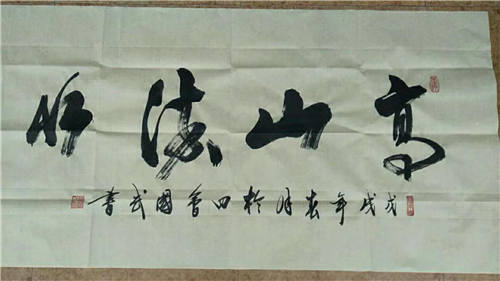 高山流水
戊戌年春月於四會國武書